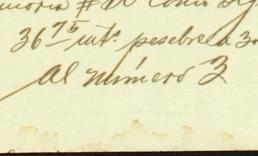 # al como
36 75 mts. pesebre a 3
al número 3